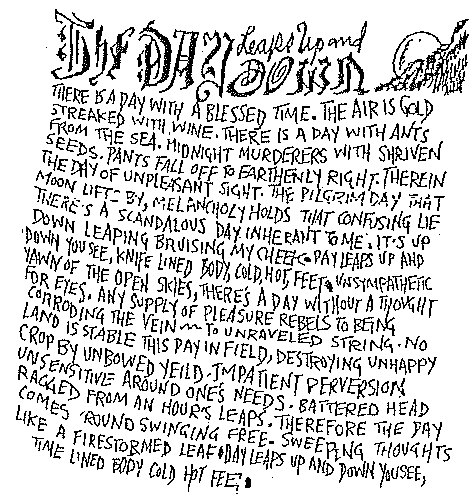 The DAY Leaps Up and DOWN
THERE IS A DAY WITH A BLESSED TIME. THE AIR IS GOLD
STREAKED WITH WINE. THERE IS A DAY WITH ANTS
FROM THE SEA. MIDNIGHT MURDERERS WITH SHRIVEN
SEEDS. PANTS FALL OFF TO EARTHENLY RIGHT. THEREIN
THE DAY OF UNPLEASANT SIGHT. THE PILGRIM DAY THAT
MOON LIFTS BY, MELANCHOLY HOLDS THAT CONFUSING LIE
THERE'S A SCANDALOUS DAY INHERANT TO ME. IT'S UP
DOWN LEAPING BRUISING MY CHEEK. DAY LEAPS UP AND
DOWN YOU SEE, KNIFE LINED BODY, COLD, HOT, FEET. UNSYMPATHETIC
YAWN OF THE OPEN SKIES, THERE'S A DAY WITHOUT A THOUGHT
FOR EYES. ANY SUPPLY OF PLEASURE REBELS TO BEING
CORRODING THE VEIN ~ TO UNRAVELED STRING. NO
LAND IS STABLE THIS DAY IN FIELD, DESTROYING UNHAPPY
CROP BY UNBOWED YEILD. IMPATIENT PERVERSION
UNSENSITIVE AROUND ONE'S NEEDS. BATTERED HEAD
RAGGED FROM AN HOUR'S LEAPS. THEREFORE THE DAY
COMES 'ROUND SWINGING FREE. SWEEPING THOUGHTS
LIKE A FIRESTORMED LEAF. DAY LEAPS UP AND DOWN YOU SEE,
TIME LINED BODY COLD HOT FEET.